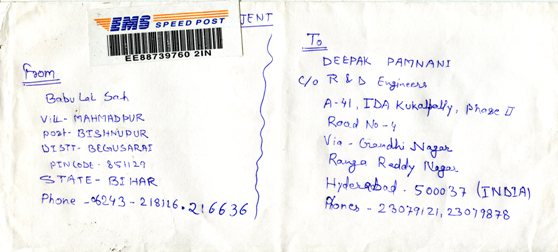 EMS SPEED POST
EE88739760 2IN
From
Babu Lal Sah
Vill- MAHMADPUR
Post- BISHNUPUR
DISTT- BEGUSARAI
PINCODE- 851129
STATE- BIHAR
Phone - 06243 - 218116, 216636
To
DEEPAK PAMNANI
C/o R & D Engineers
A-41, IDA Kukatpally, Phase II
Road No-4
Via - Gandhi Nagar
Ranga Reddy Nagar
Hyderabad - 500037 (INDIA)
Phones - 23079121, 23079878